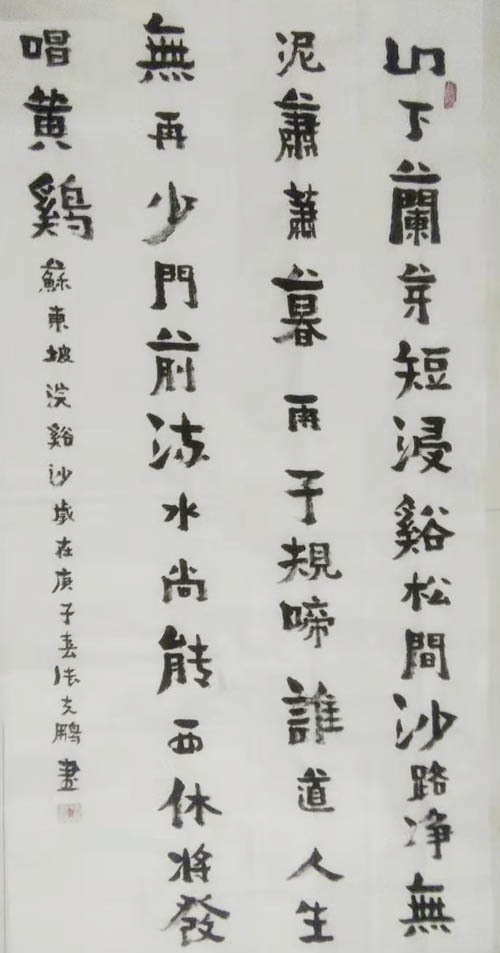 山下蘭芽短浸谿松間沙路净無
泥蕭蕭暮雨子規啼誰道人生
無再少門前流水尚能西休將發
唱黄鷄
蘇東坡浣谿沙歲在庚子春张文鵬書